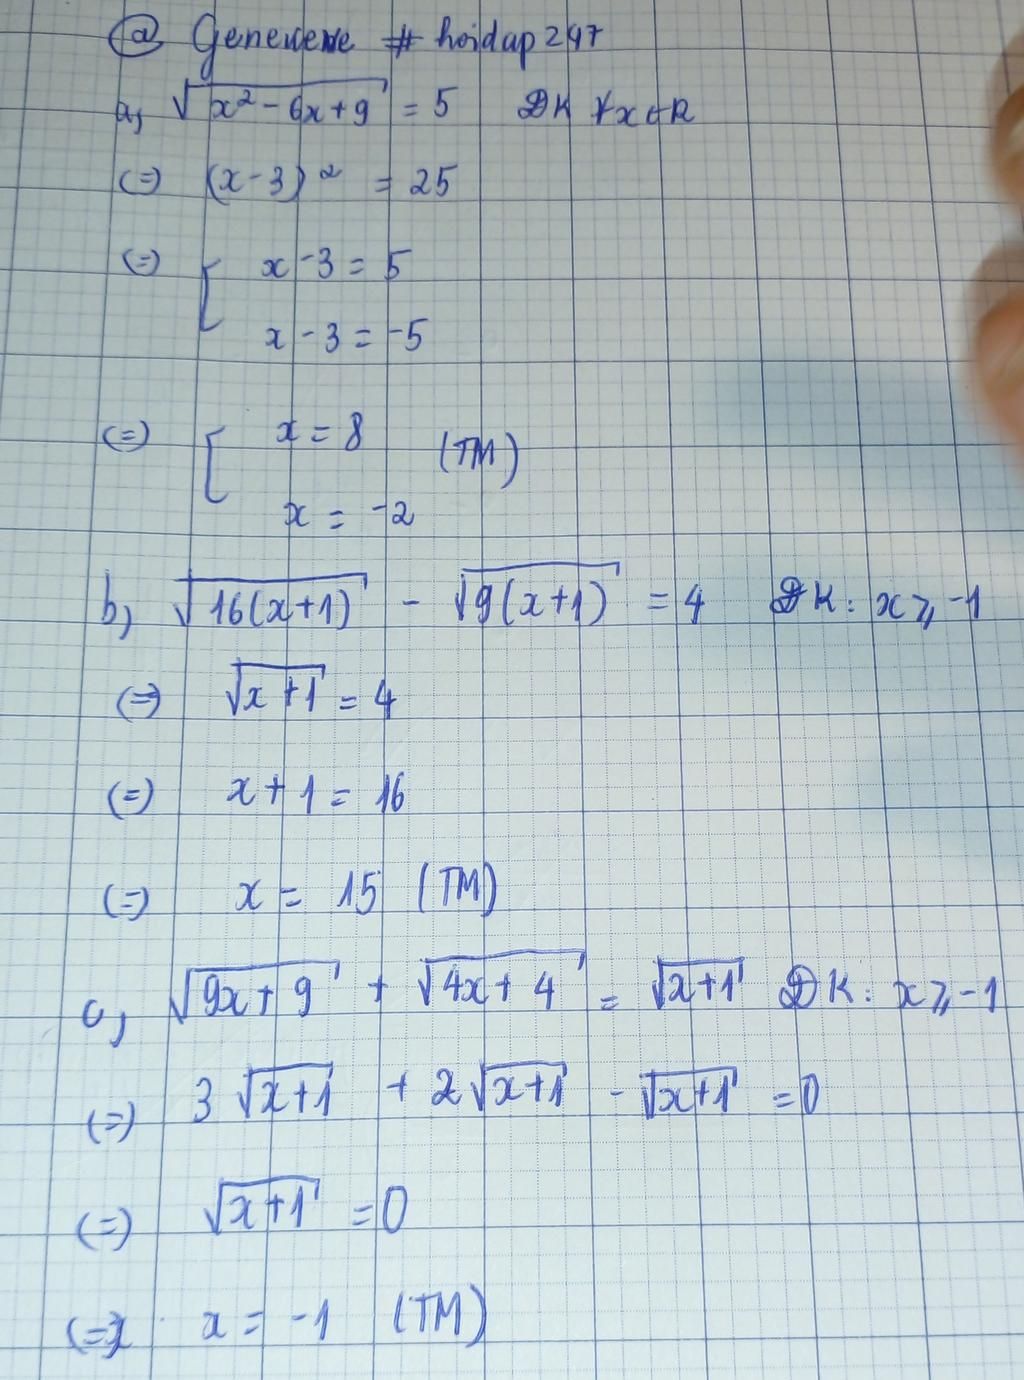 @ Genenene # hoidap247
a, √(x² - 6x + 9) = 5 ĐK ∀x ∈ R
(=) (x - 3)² = 25
(=) [ x - 3 = 5
x - 3 = -5
(=) [ x = 8 (TM)
x = -2
b, √(16(x+1)) - √(9(x+1)) = 4 ĐK: x ⩾ -1
(=) √(x+1) = 4
(=) x + 1 = 16
(=) x = 15 (TM)
c, √(9x + 9) + √(4x + 4) = √(x+1) ĐK: x ⩾ -1
(=) 3√(x+1) + 2√(x+1) - √(x+1) = 0
(=) √(x+1) = 0
(=) x = -1 (TM)